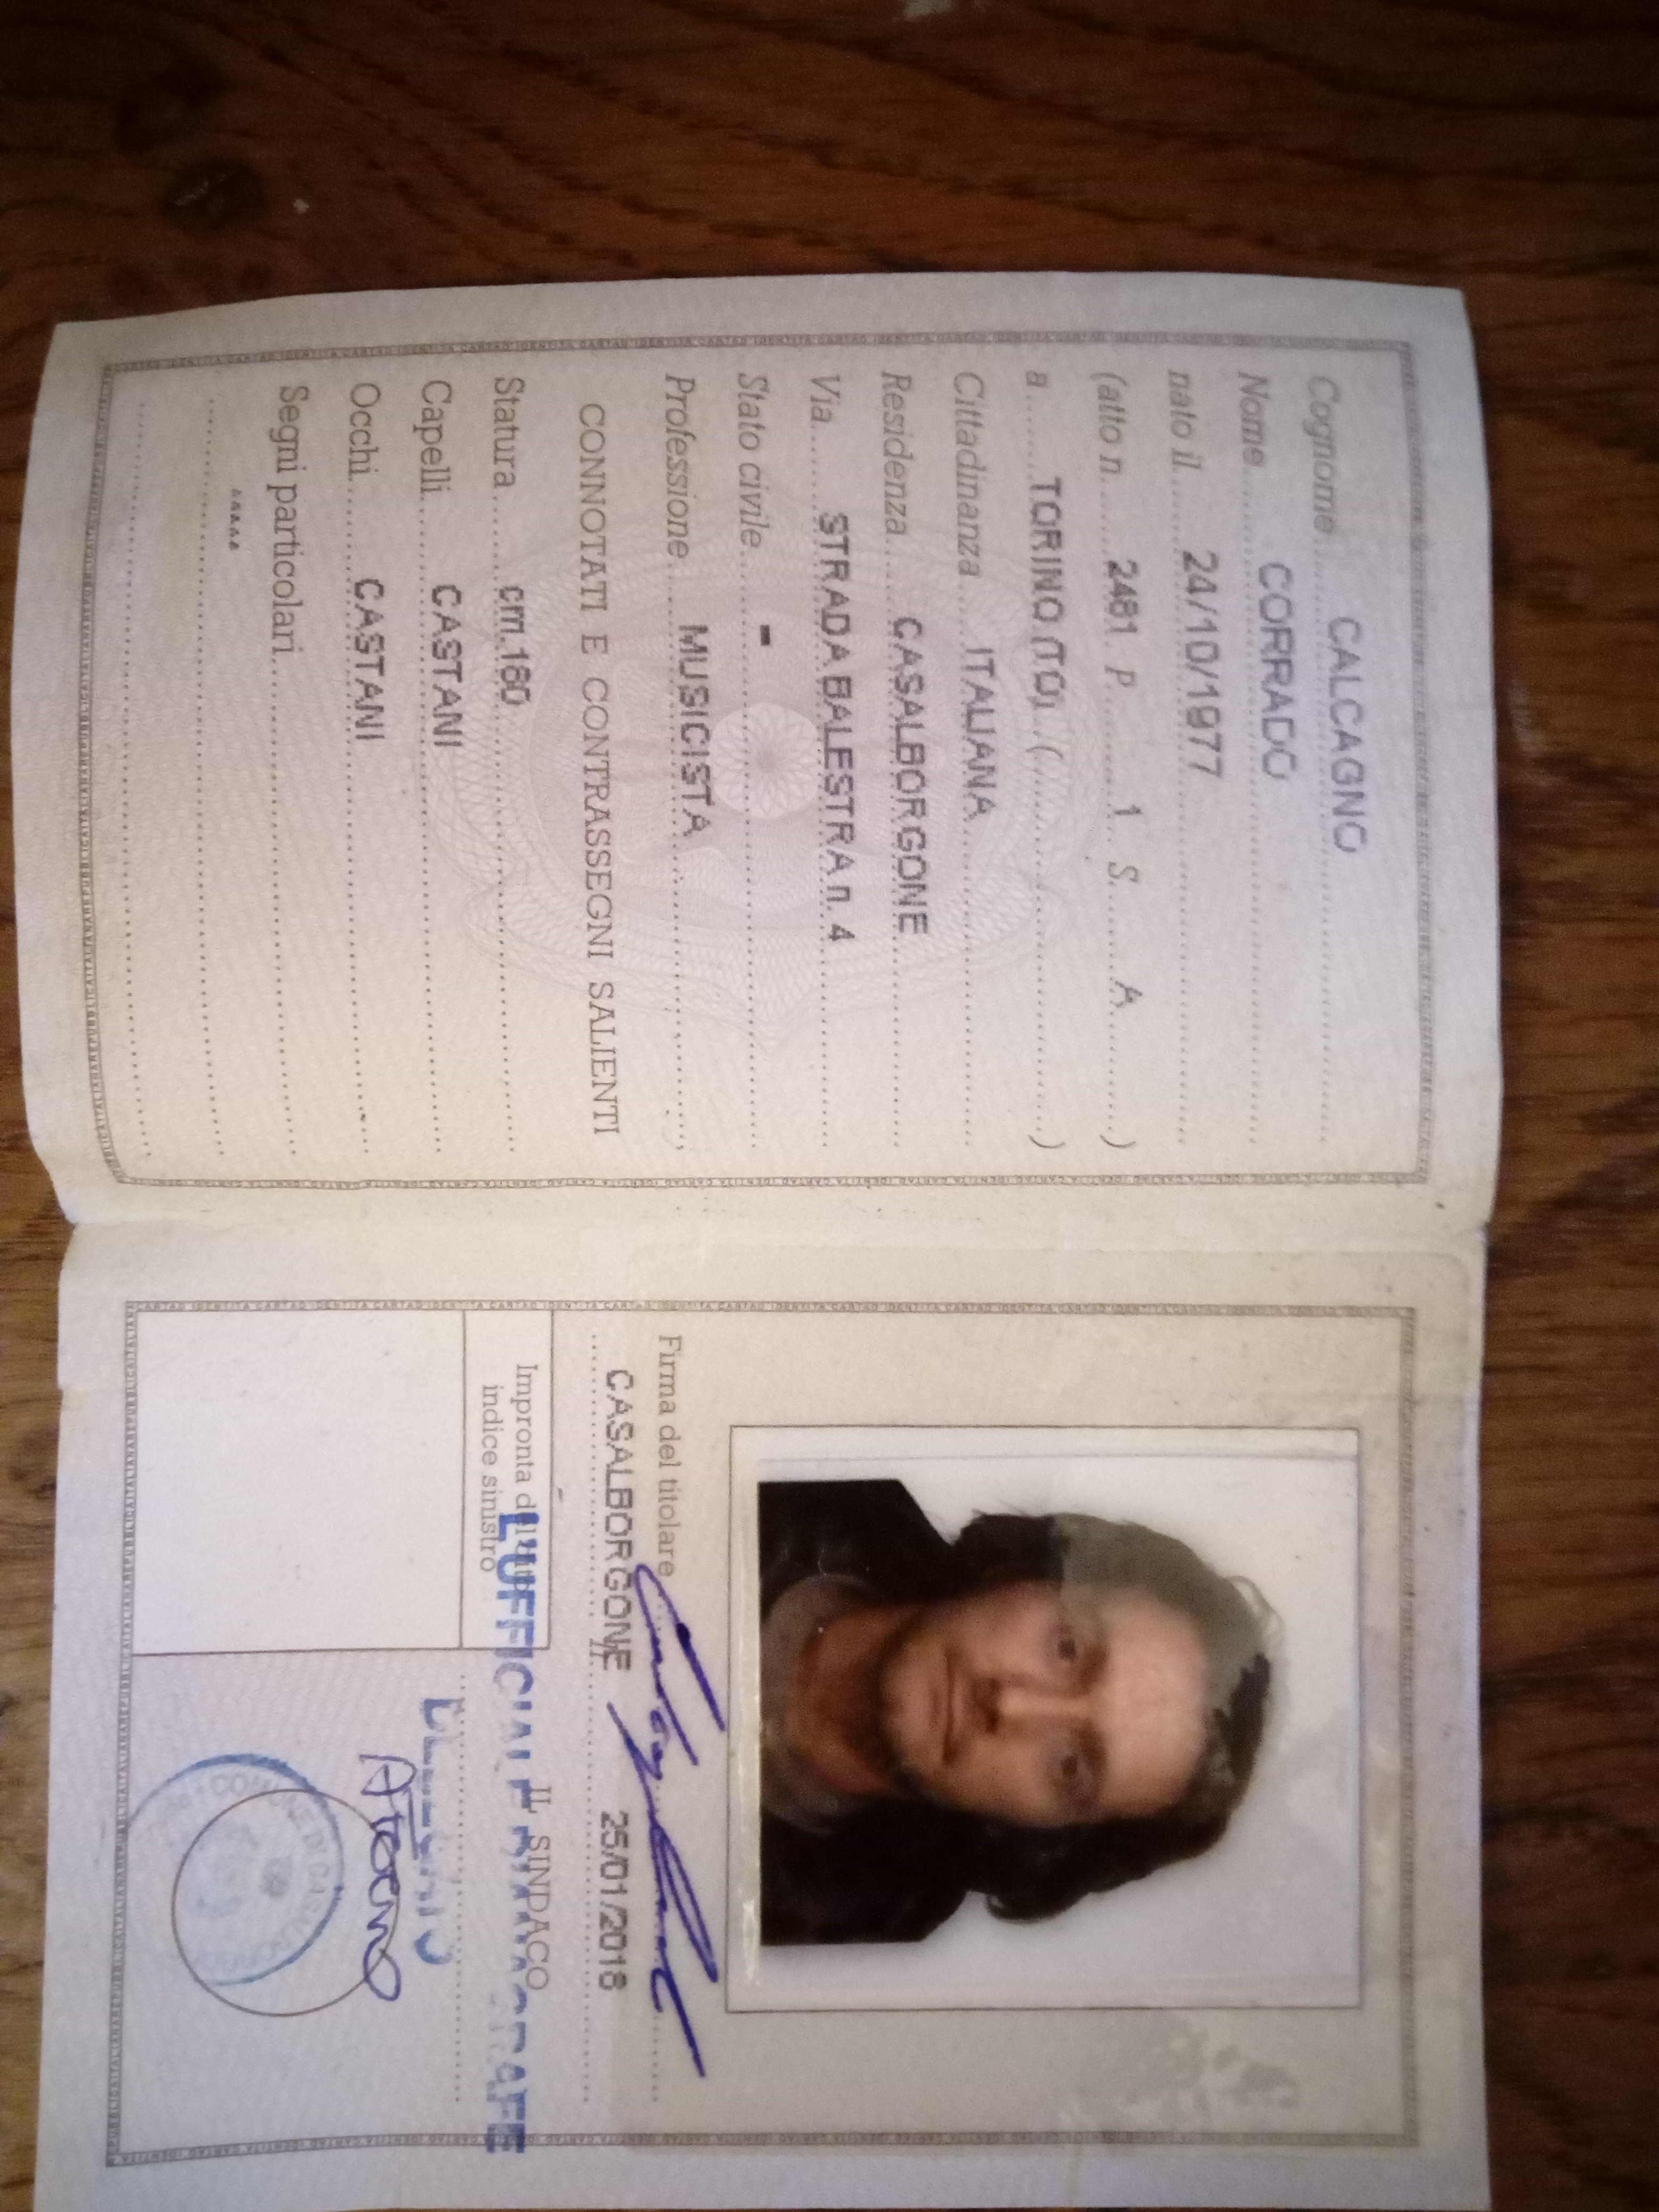 Cognome CALCAGNO
Nome CORRADO
nato il 24/10/1977
(atto n. 2481 P. 1 S. A )
a TORINO (TO) ( )
Cittadinanza ITALIANA
Residenza CASALBORGONE
Via STRADA BALESTRA n. 4
Stato civile -
Professione MUSICISTA
CONNOTATI E CONTRASSEGNI SALIENTI
Statura cm.180
Capelli CASTANI
Occhi CASTANI
Segni particolari
Firma del titolare
CASALBORGONE lì 25/01/2018
Impronta del dito
indice sinistro
IL SINDACO
L'UFFICIALE D'ANAGRAFE